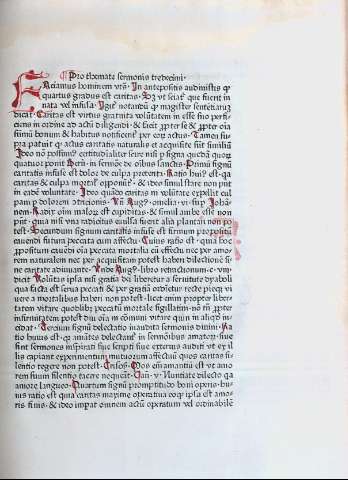 Pro themate sermonis tredecimi.
FAciamus hominem &c̄. In antepositis audiuistis qꝫ
quartus gradus est caritas. Sꝫ vt sciat᷑ que fuerit in
nata vel infusa. notandū qꝫ magister sententiarū
dicit. Caritas est virtus gratuita volūtatem in esse suo perfi
ciens in ordine ad actū diligendi. & facit ꝓpter se & ꝓpter oīa
summū bonum & habitus notificēt᷑ per eoꝝ actus. Tamen su
pra patuit qꝫ actus caritatis naturalis et acquisite sūt similiū
Ideo nō possum⁹ certitudīaliter scire nisi ꝑ signa quedā quoꝝ
quatuor ponit in sermōe de oībus sanctis. Primū signū
caritatis infuse est dolor de culpa preterita. Ratio hui⁹ est. qꝫ
caritas & culpa mortał opponūt᷑. & ideo simul stare non pūt
in eadē voluntate. Ideo quādo caritas in volūtate expellit cul
pam ꝑ dolorem Vn̄ Aug⁹. omelia .v. sup Johā
nem. Radix oīm maloꝝ est cupiditas. & simul ambe esse non
pn̄t. quia nisi vna radicitus euulsa fuerit alia plantari non po
test. Secundum signum caritatis infuse est firmum propositū
cauendi futura peccata cum affectu. Cuius ratio est. quia hoc
ꝓpositum cauēdi oīa peccata mortalia cū effectu nec per amo
rem naturalem nec per acquisitam potest haberi dilectionē si
ne caritate adiuuante. Vnde Aug⁹. libro retractionum
dicit Volūtas ipsa nisi gratia dei liberetur a seruitute
qua facta est serua peccati & per gratiā ordietur recte piecꝫ vi
uere a mortalibus haberi non potest. licet enim propter liber
tatem vitare quodlibꝫ peccatū mortale sigillatim. nō tñ ꝓpter
infirmitatem potest diu oīa in cōmuni vitare quin in aliqd in
cidat. Tercium signū delectatio inaudita sermonis diuini. Ra
tio huius est. qꝫ amātes delectant᷑ in sermonibus amatoꝝ. siue
sint sermones inspirati siue scripti siue exterius auditi vt ex il
lis capiant experimentum mutuorum affectuū quos caritas si
lentio tegere non potest. Crisos. Mos em̄ amantiū est vt amo
rem suum silentio tacere nequeāt. Can̄ .v. Nuntiate dilecto qꝫ
amore langueo. Quartum signū promptitudo boni operis. hu
ius ratio est quia caritas maxime operatiua eoꝝ ipsa est amo
ris finis. & ideo imꝑat omnem actū operatum vel ordinabilē